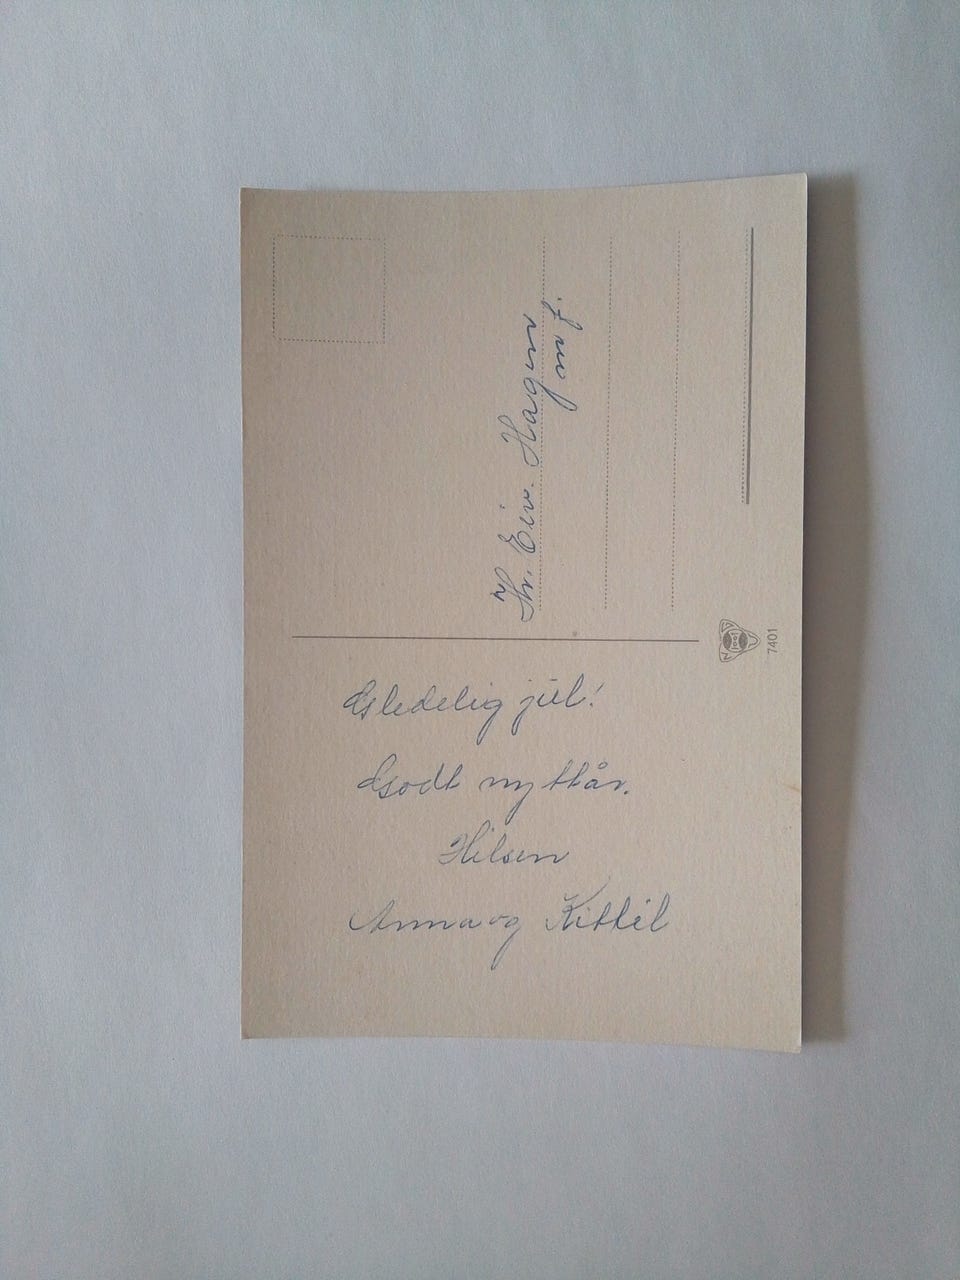 Gledelig jul!
Godt nyttår.
Hilsen
Anna og Kittil
Hr. Eiv. Hagen
m f.
7401